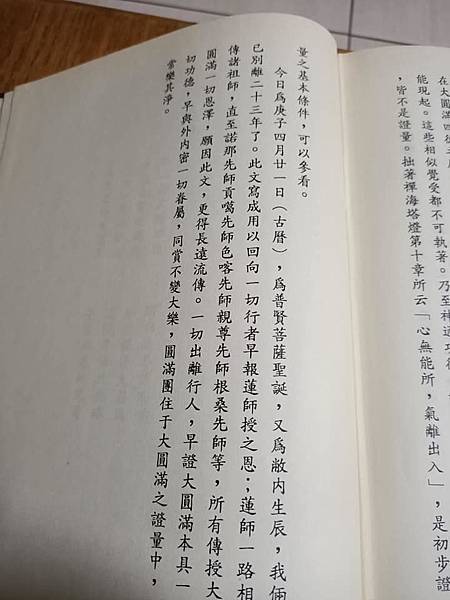 在大圓滿四
能現起。這些相似覺受都不可執著。乃至神通功
,皆不是證量。拙著禪海塔燈第十章所云「心無能所,氣離出入」,是初步證
量之基本條件,可以參看。
今日爲庚子四月廿一日(古曆),爲普賢菩薩聖誕,又爲敝內生辰,我倆
已別離二十三年了。此文寫成用以回向一切行者早報蓮師授之恩;蓮師一路相
傳諸祖師,直至諾那先師貢噶先師色喀先師親尊先師根桑先師等,所有傳授大
圓滿一切恩澤,願因此文,更得長遠流傳。一切出離行人,早證大圓滿本具一
切功德,早與外內密一切眷屬,同賞不變大樂,圓滿團住于大圓滿之證量中,
常樂其淨。